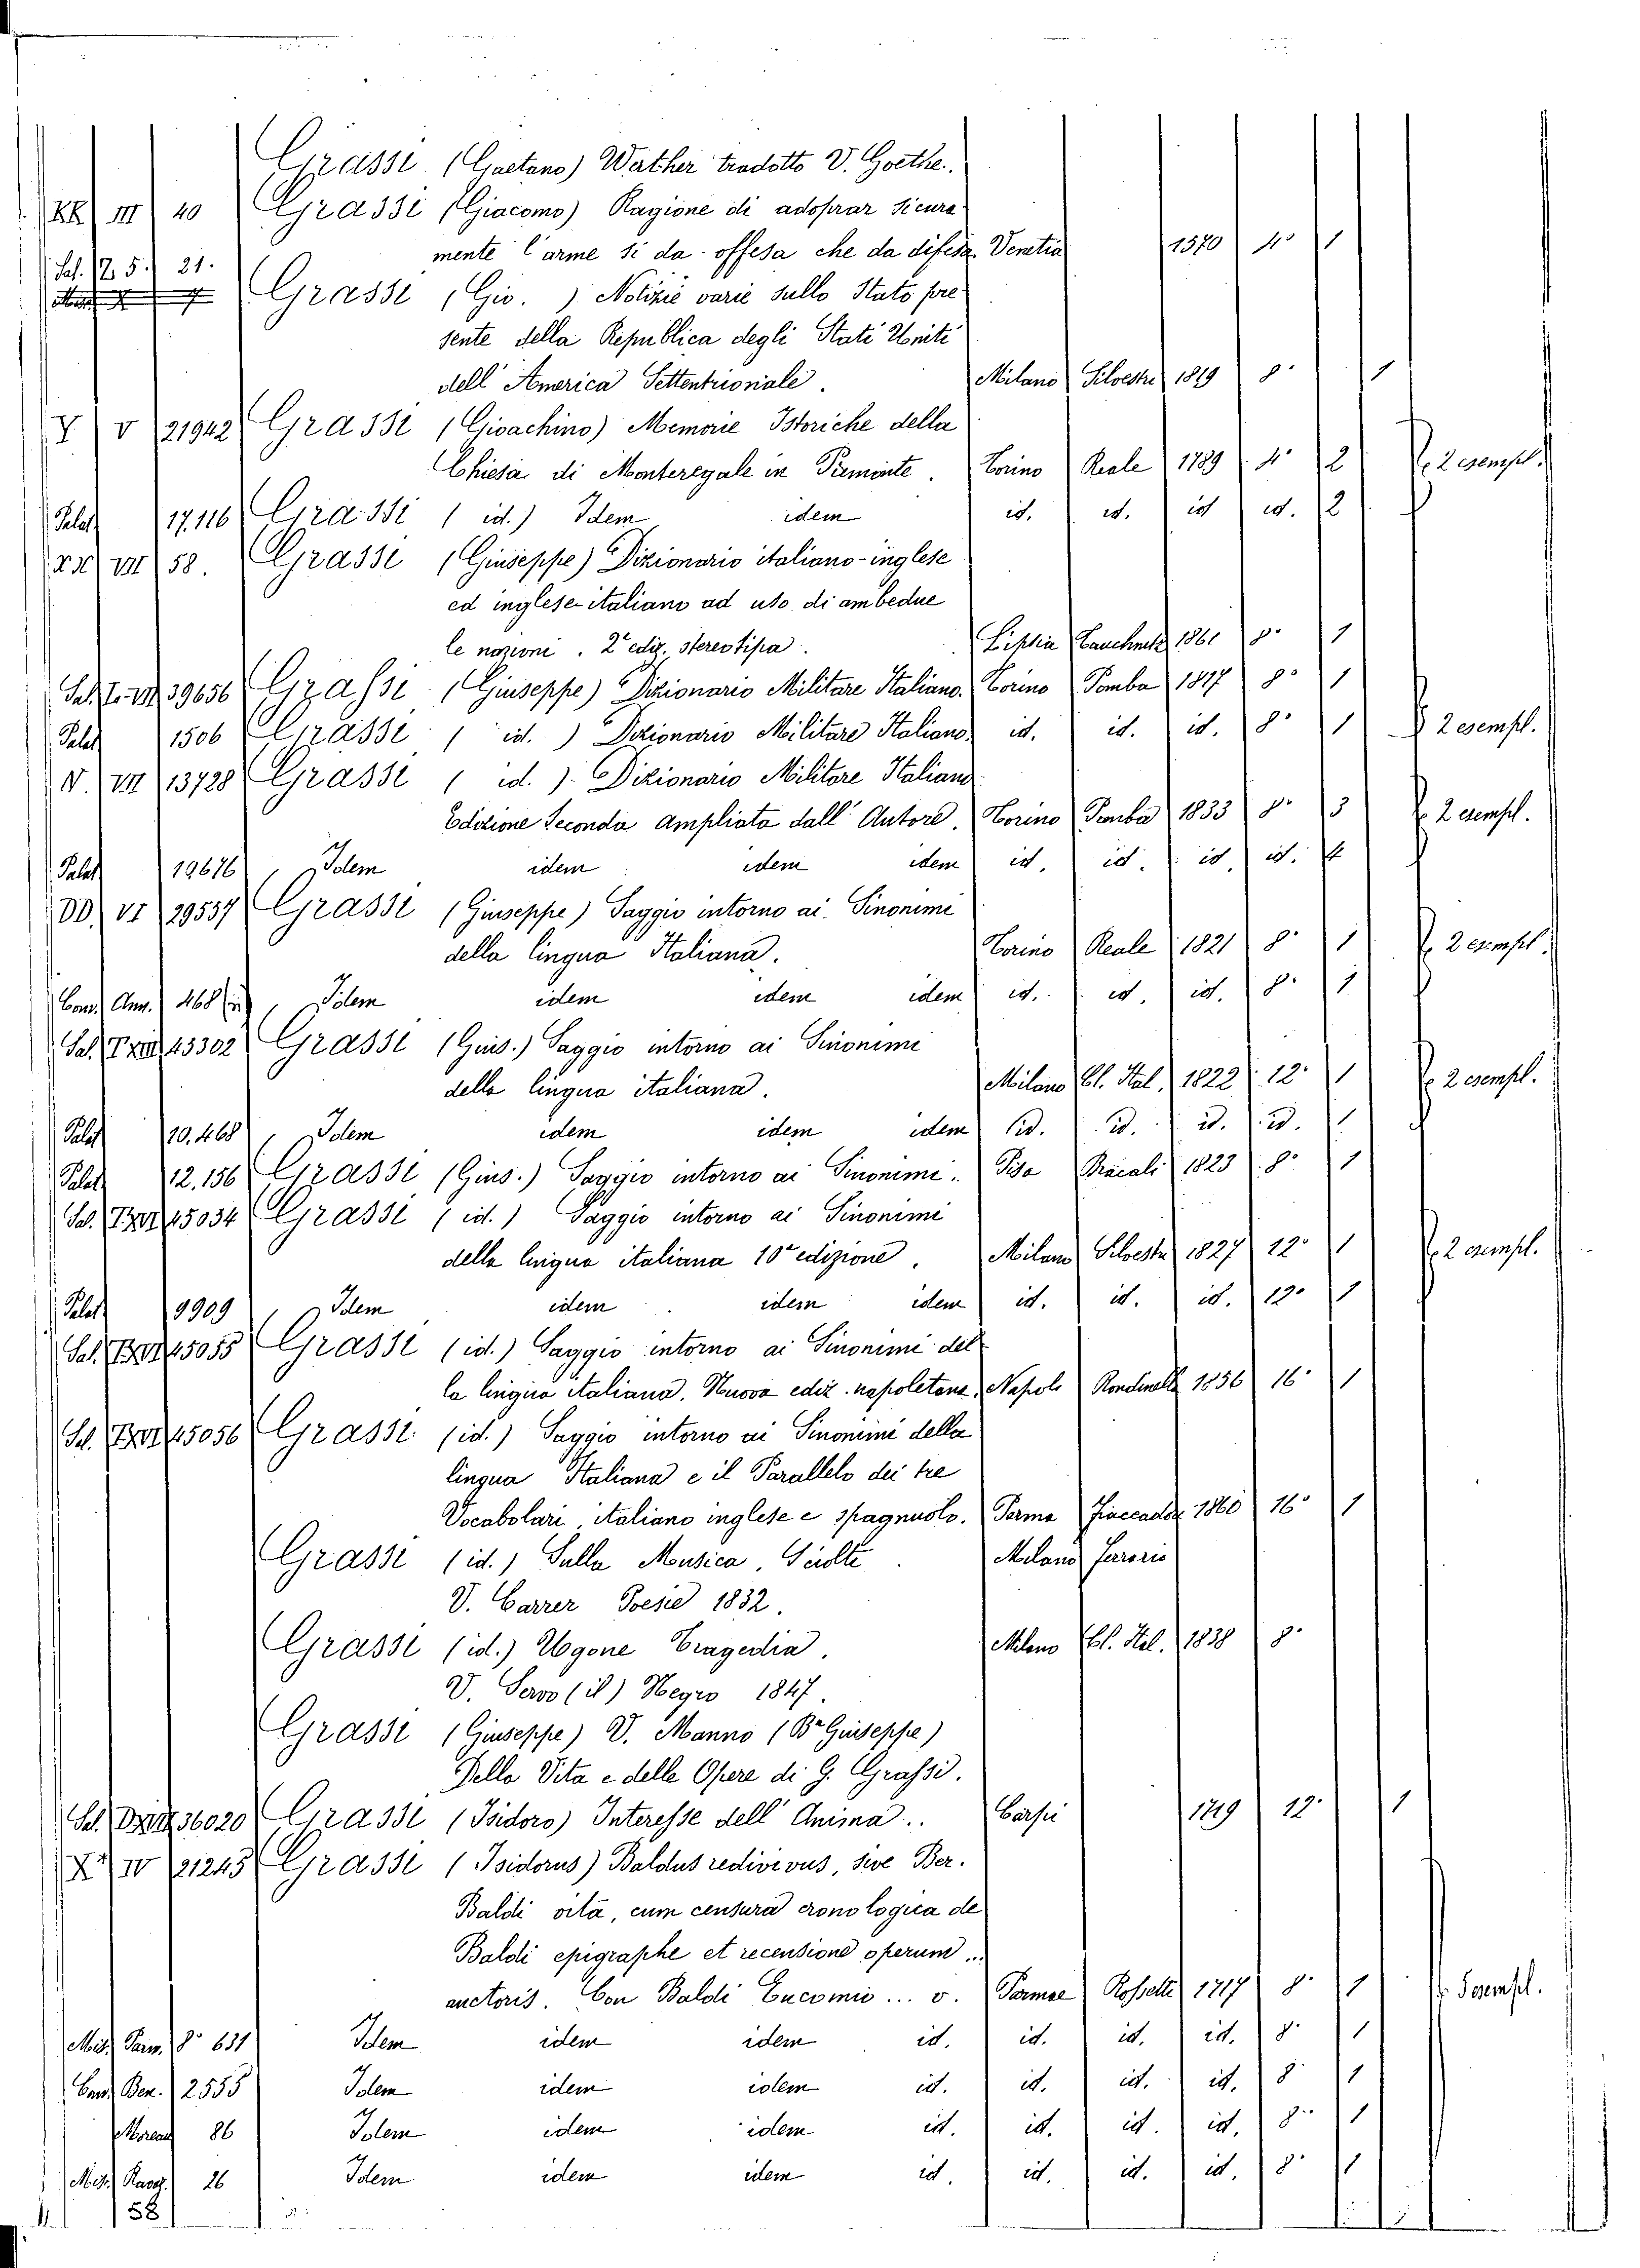 Grassi (Gaetano) Werther tradotto V. Goethe.
KK III 40 Grassi (Giacomo) Ragione di adoprar sicura
mente l'arme si da offesa che da difesa. Venetia 1570 4° 1
Sal. 5. 21.
Grassi (Gio. ) Notizie varie sullo Stato pre
sente della Republica degli Stati Uniti
dell' America Settentrionale. Milano Silvestri 1819 8° 1
Y V 21942 Grassi (Gioachino) Memorie Istoriche della
Chiesa di Monteregale in Piemonte. Torino Reale 1789 4° 2 2 esempl.
Palat 17.116 Grassi ( id.) Idem idem id. id. id id. 2
VII 58. Grassi (Giuseppe) Dizionario italiano-inglese
ed inglese-italiano ad uso di ambedue
le nazioni. 2ª ediz. stereotipa. Lipsia Tauchnitz 1861 8° 1
39656 Grassi (Giuseppe) Dizionario Militare Italiano. Torino Pomba 1817 8° 1
Palat 1506 Grassi ( id. ) Dizionario Militare Italiano. id. id. id. 8° 1 2 esempl.
N. VII 13728 Grassi ( id. ) Dizionario Militare Italiano
Edizione Seconda Ampliata dall' Autore. Torino Pomba 1833 8° 3 2 esempl.
Palat 19676 Idem idem idem idem id. id. id. id.
DD. VI 29537 Grassi (Giuseppe) Saggio intorno ai Sinonimi
della lingua Italiana. Torino Reale 1821 8° 1 2 esempl.
Ann. 468 Idem idem idem idem id. id. id. 8° 1
Sal. 45302 Grassi (Gius.) Saggio intorno ai Sinonimi
della lingua italiana. Milano Cl. Ital. 1822 12° 1 2 esempl.
Palat 10.468 Idem idem idem idem id. id. id. id. 1
Palat 12.156 Grassi (Gius.) Saggio intorno ai Sinonimi. Pisa 1823 8° 1
Sal. 45034 Grassi ( id. ) Saggio intorno ai Sinonimi
della lingua italiana 10ª edizione. Milano Silvestri 1827 12° 1 2 esempl.
Palat 9909 Idem idem idem idem id. id. id. 12° 1
Sal. 45055 Grassi (id.) Saggio intorno ai Sinonimi del
la lingua italiana. Nuova ediz. napoletana. Napoli Rondinella 1856 16° 1
Sal. 45056 Grassi (id.) Saggio intorno ai Sinonimi della
lingua Italiana e il Parallelo dei tre
Vocabolari, italiano inglese e spagnuolo. Parma Fiaccadori 1860 16° 1
Grassi (id.) Sulla Musica, Sciolti. Milano
V. Carrer Poesie 1832.
Grassi (id.) Ugone Tragedia. Milano Cl. Ital. 1838 8°
V. Servo (il) Negro 1847.
Grassi (Giuseppe) V. Manno (Bne Giuseppe)
Della Vita e delle Opere di G. Grassi.
Sal. 36020 Grassi (Isidoro) Interesse dell' Anima.. Carpi 1719 12° 1
IV 21245 Grassi (Isidorus) Baldus redivivus, sive Ber.
Baldi vita, cum censura cronologica de
Baldi epigraphe et recensione operum..
auctoris. Con Baldi Encomio ... v. Parmae Rosseti 1717 8° 1 5 esempl.
Misc. Parm. 8° 631 Idem idem idem id. id. id. id. 8° 1
Ben. 2555 Idem idem idem id. id. id. id. 8° 1
Moreau 86 Idem idem idem id. id. id. id. 8° 1
Misc. 26 Idem idem idem id. id. id. id. 8° 1
58